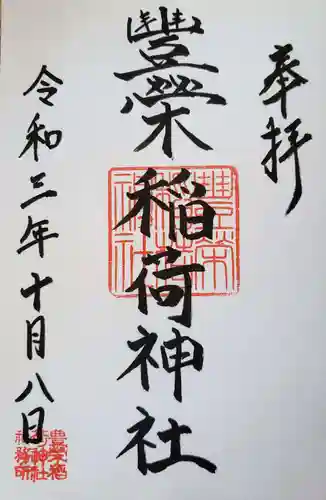 奉拝
豐榮稲荷神社
令和三年十月八日
豊榮稲荷神社